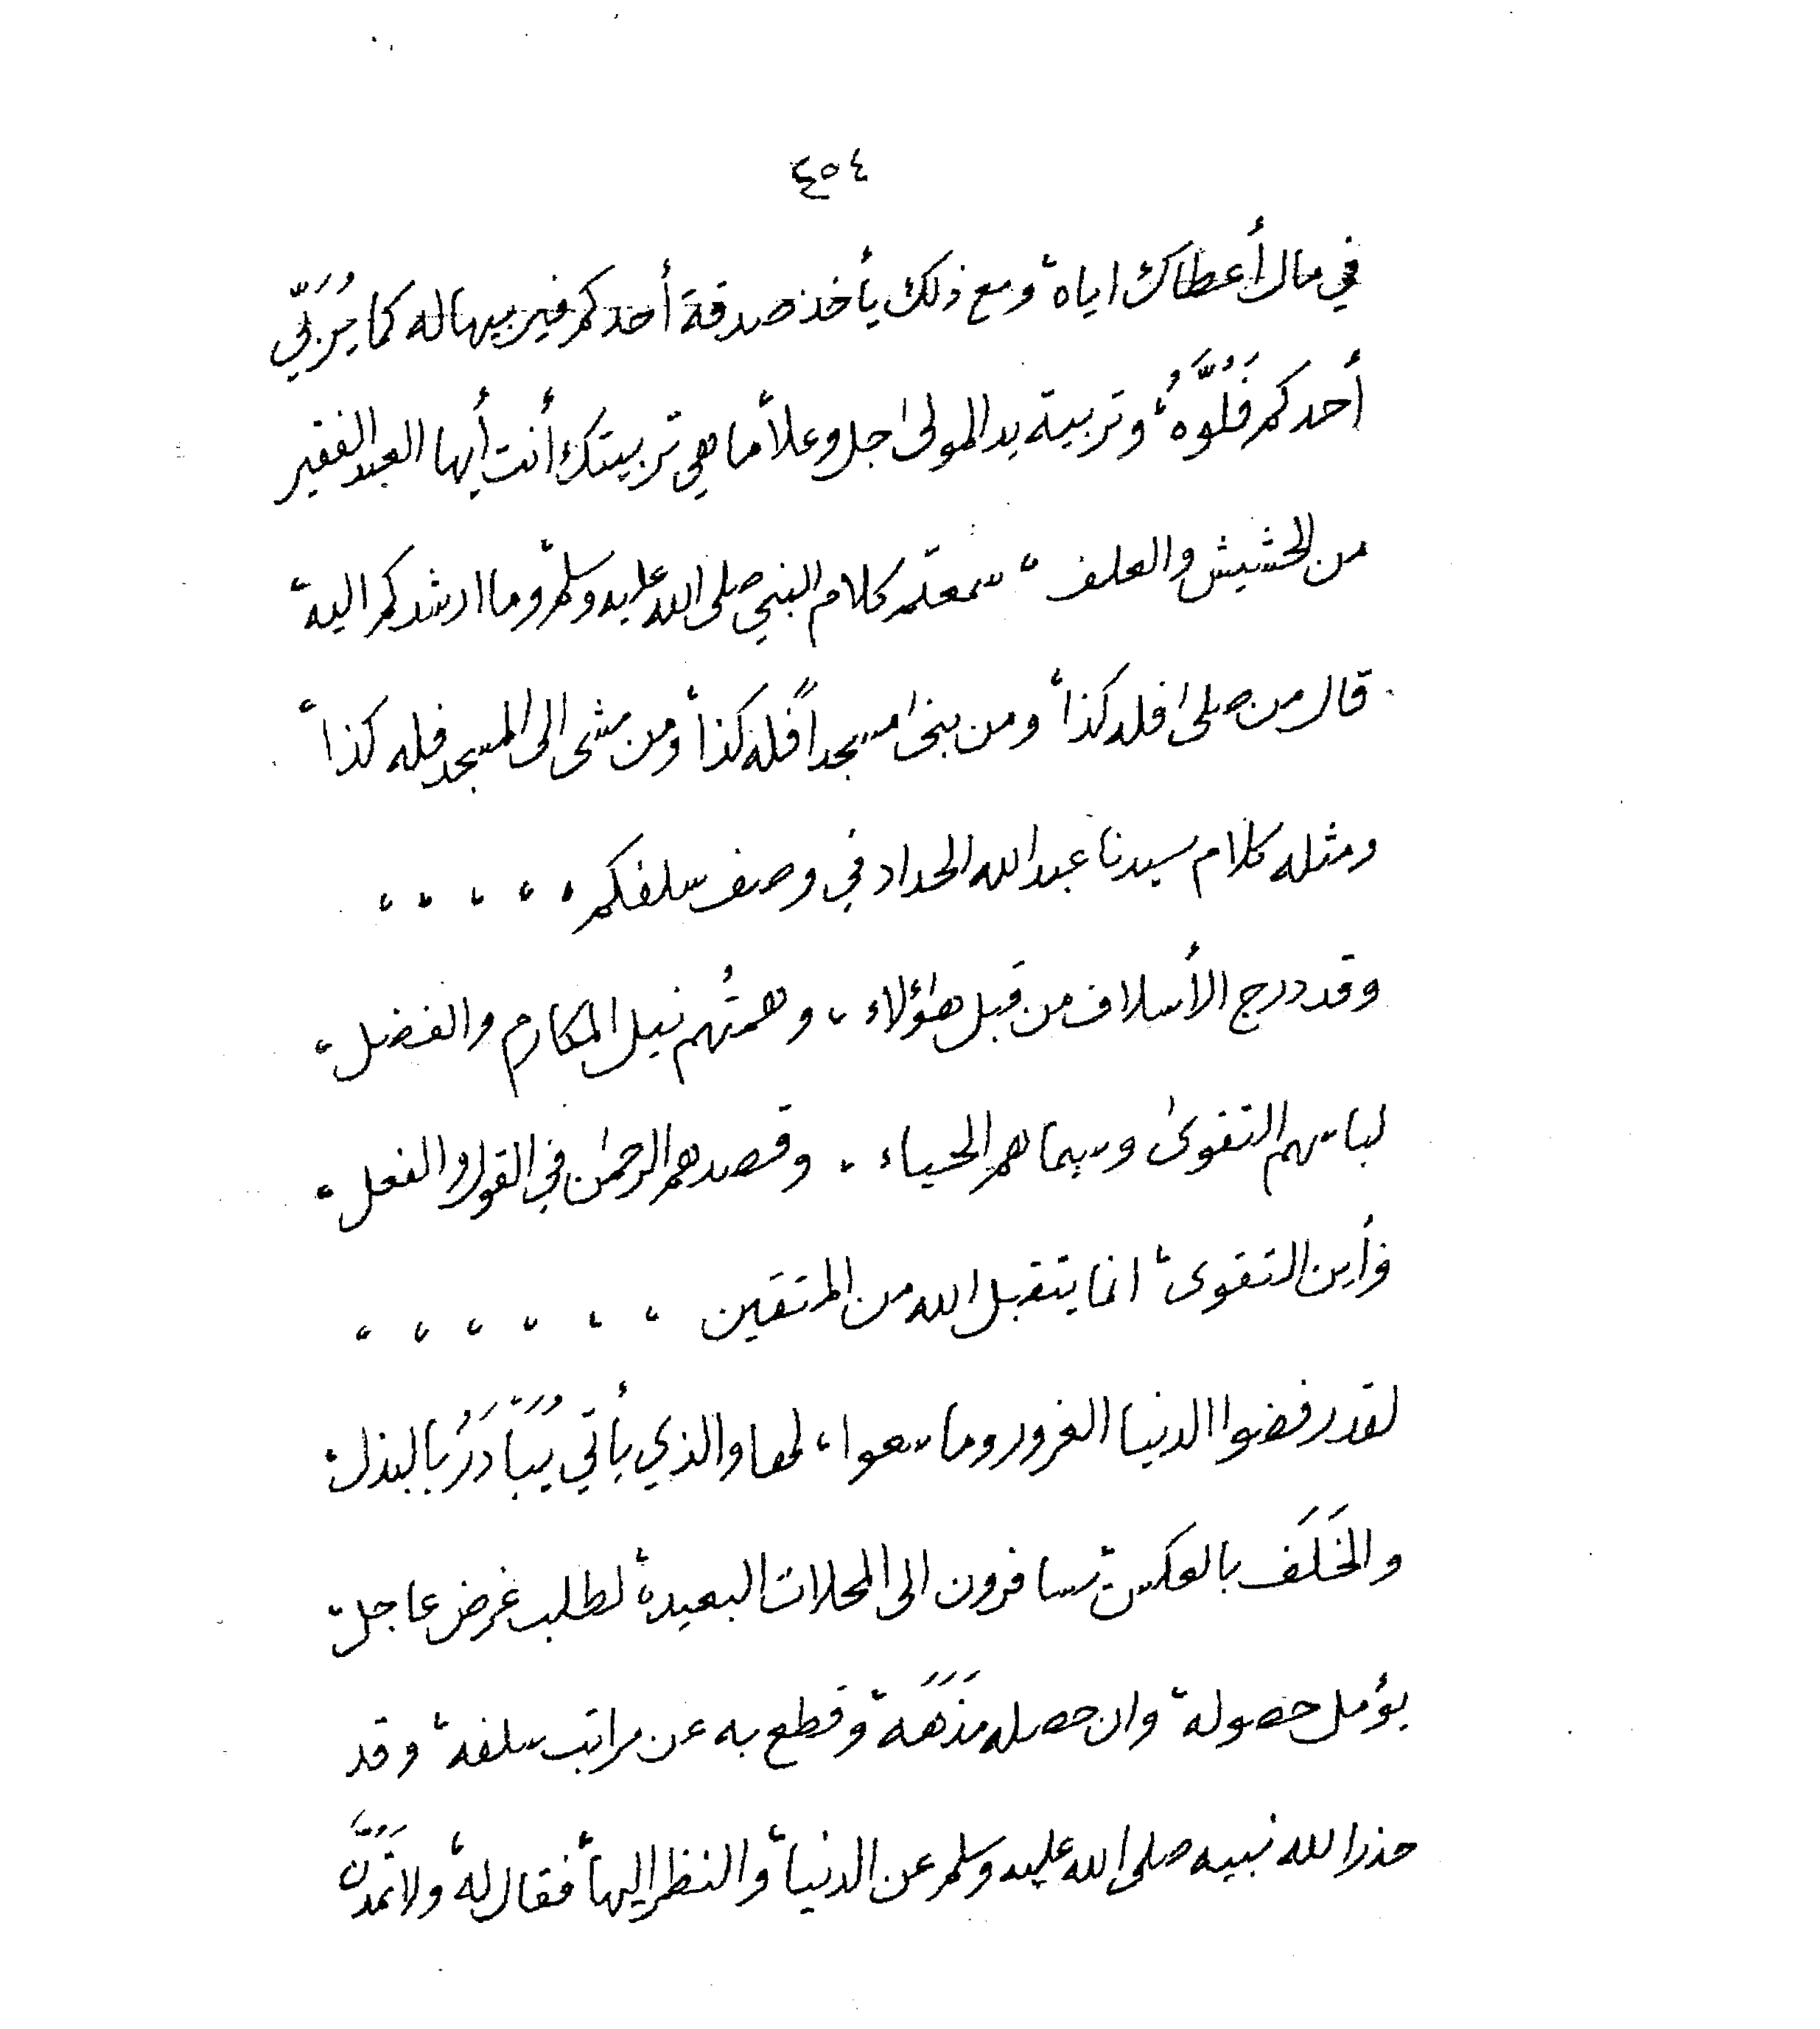 ٤٥٤
في مال أعطاك اياه، ومع ذلك يأخذ صدقة أحدكم فيربيها له كما يُرَبّي
أحدكم فَلُوَّهُ، وتربية يد المولى اجل وعلا، ما هي تربيتك أنت أيها العبد الفقير
من الحشيش والعلف، سمعتم كلام النبي صلى الله عليه وسلم، وما ارشدكم اليه،
قال من صلى فله كذا، ومن بنى مسجداً فله كذا، ومن مشى الى المسجد فله كذا،
ومثله كلام سيدنا عبد الله الحداد في وصف سلفكم، ، ، ، ،
وقد درج الأسلاف من قبل هؤلاء، وهمتُهم نيل المكارم والفضل،
لباسهم التقوى وسيماهم الحياء، وقصدهم الرحمن في القول والفعل،
فأين التقوى، انما يتقبل الله من المتقين ، ، ، ، ، ،
لقد رفضوا الدنيا الغرور وما سعوا، لها والذي يأتي يُبَادَرُ بالبذل،
والخَلَف بالعكس، تسافرون الى المحلات البعيدة، لطلب غرض عاجل،
يؤمل حصوله، وان حصله مَذَهَه، وقطع به عن مراتب سلفه، وقد
حذر الله نبيه صلى الله عليه وسلم عن الدنيا، والنظر اليها، فقال له، ولا تَمُدَّنَّ